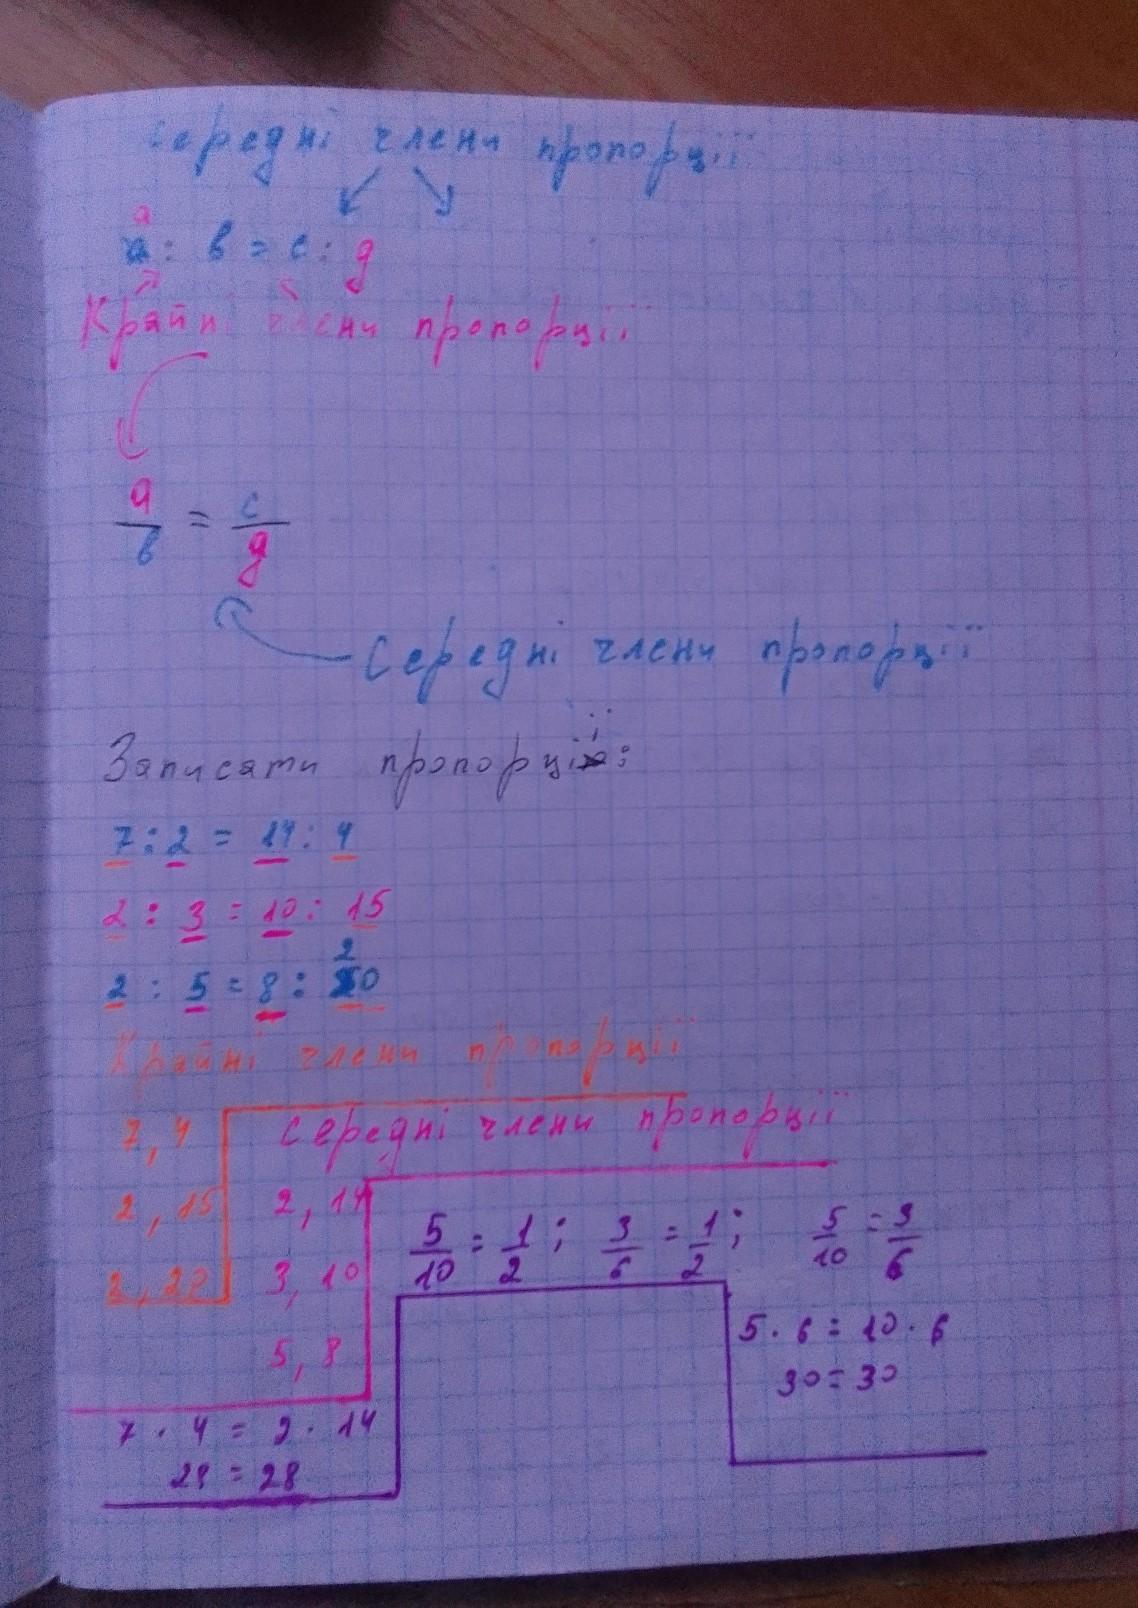 Середні члени пропорції
a
a : в = с : д
Крайні члени пропорції
a/в = с/д
Середні члени пропорції
Записати пропорції:
7 : 2 = 14 : 4
2 : 3 = 10 : 15
2
2 : 5 = 8 : 20
Крайні члени пропорції
7, 4
2, 15
2, 20
Середні члени пропорції
2, 14
3, 10
5, 8
5/10 = 1/2 ; 3/6 = 1/2 ; 5/10 = 3/6
5 · 6 = 10 · 6
30 = 30
7 · 4 = 2 · 14
28 = 28